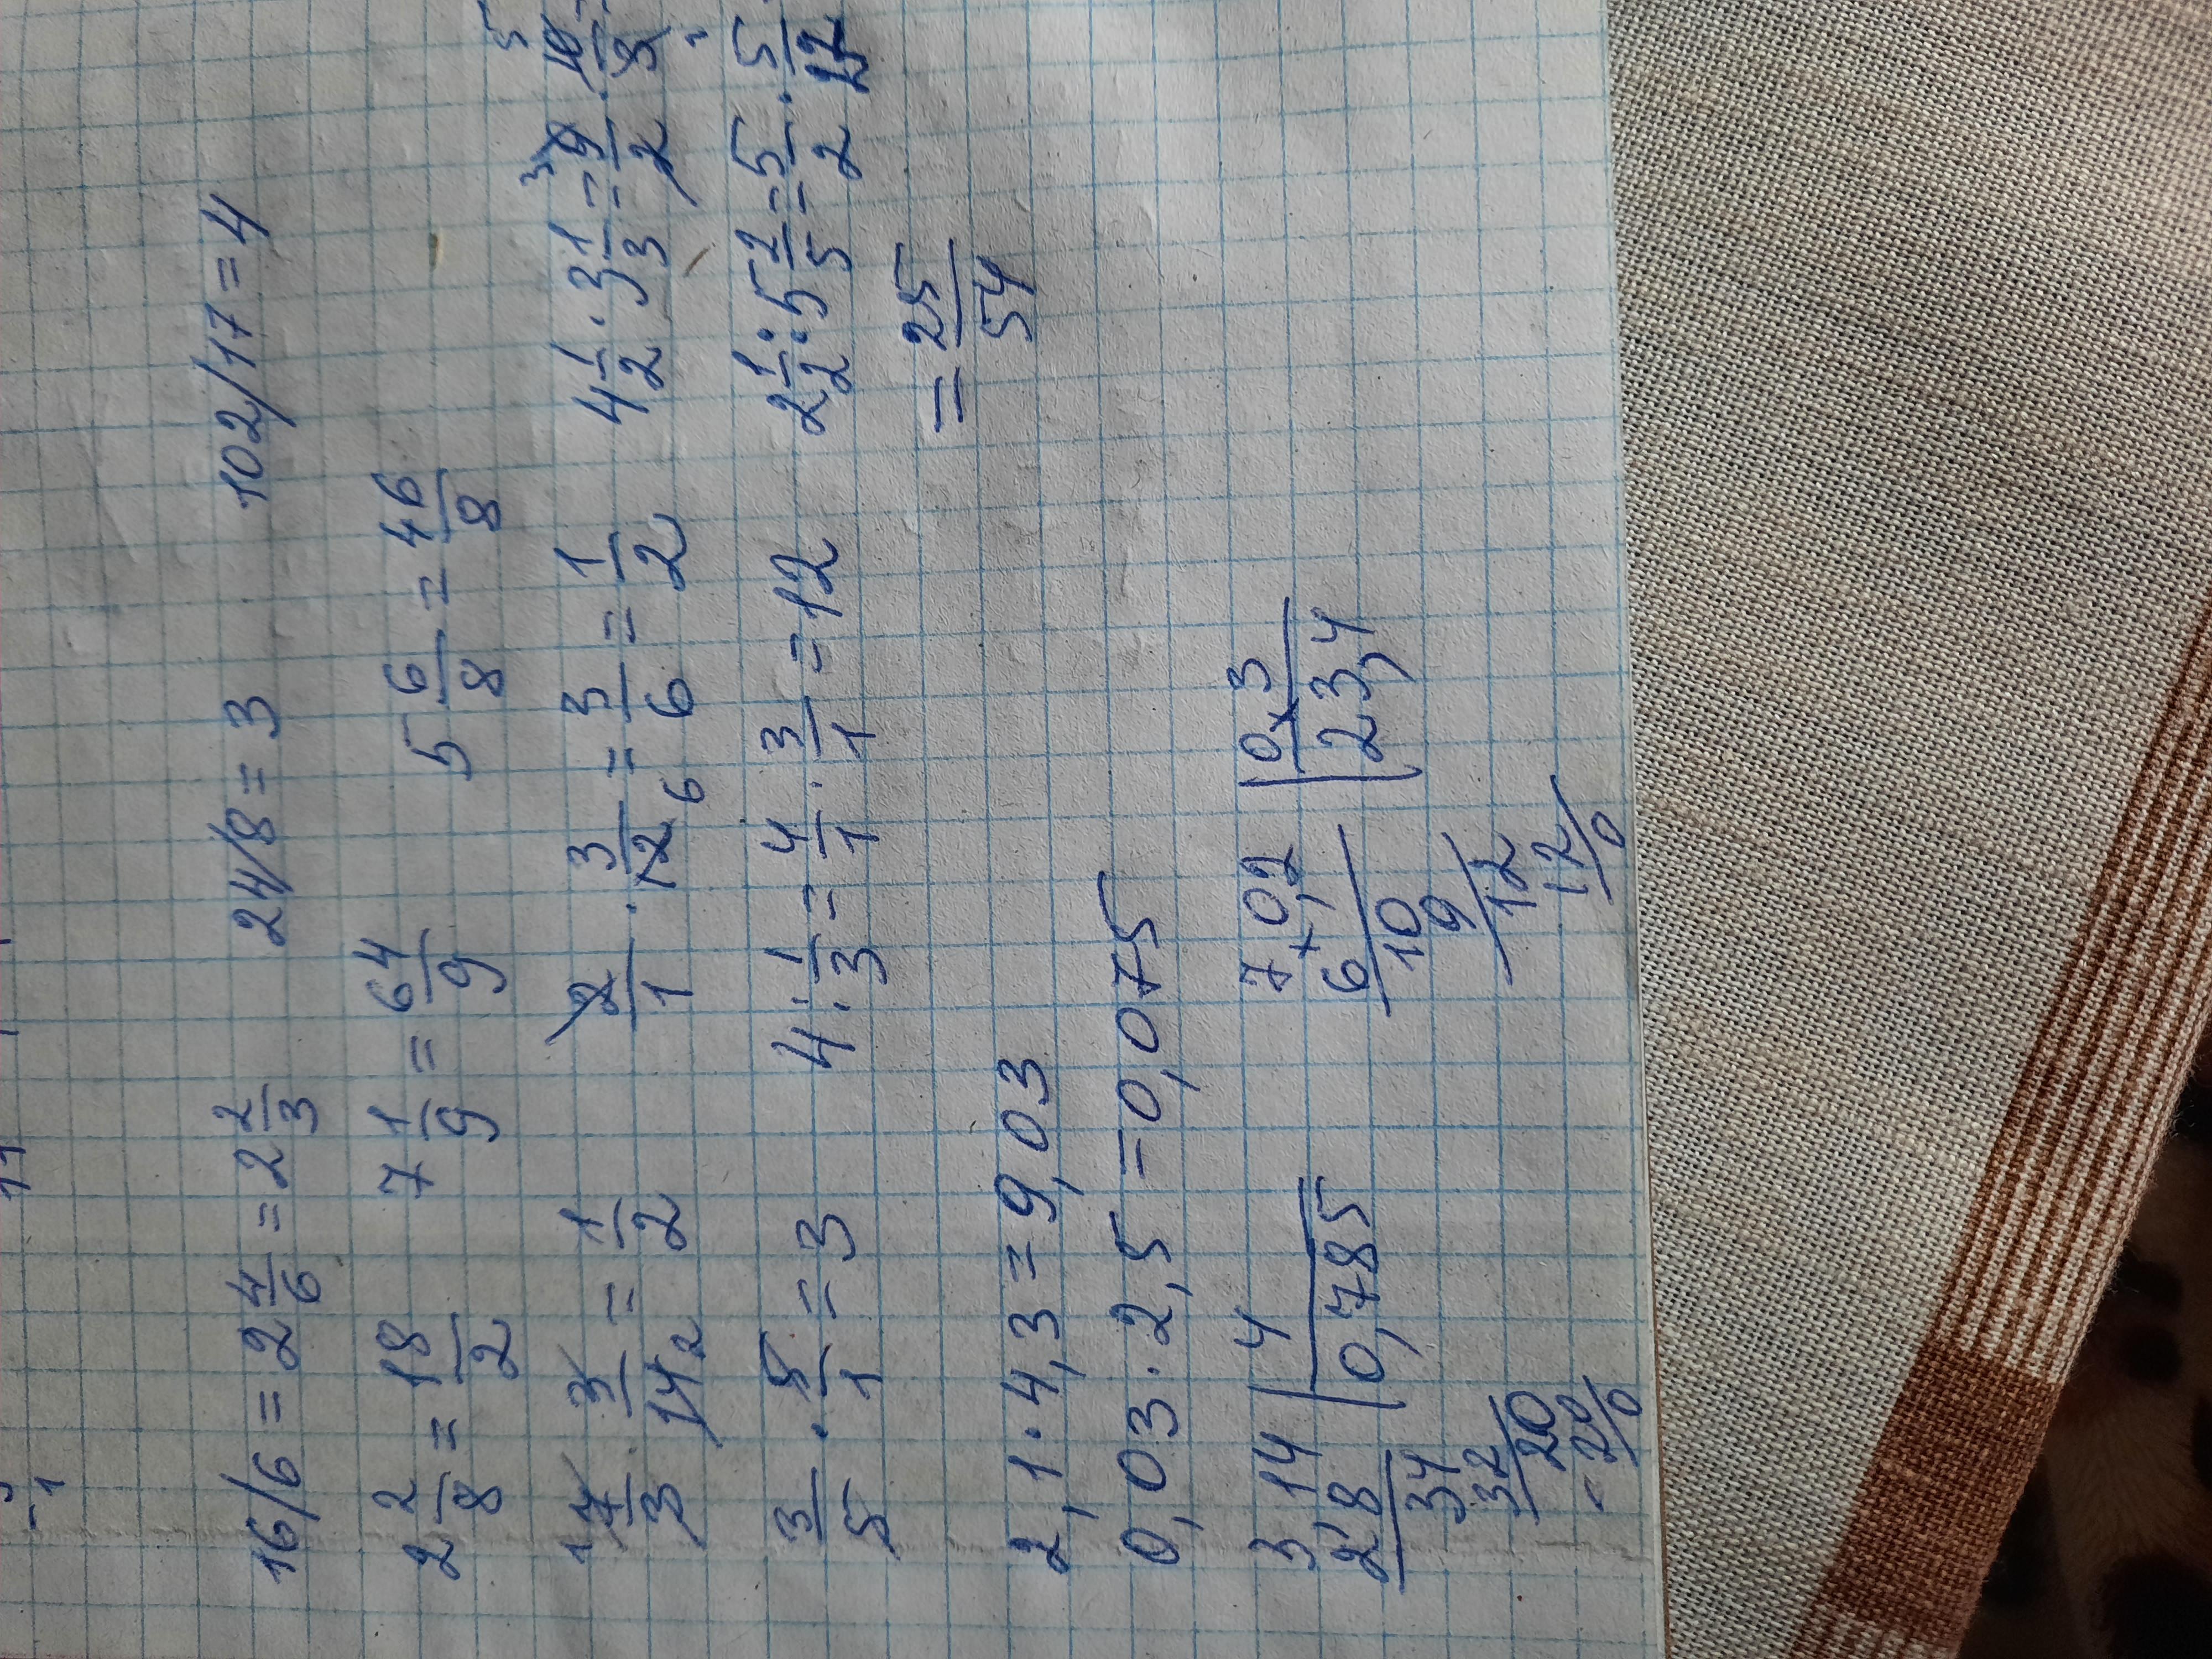 16/6 = 2 4/6 = 2 2/3   24/8 = 3   102/17 = 4
2 2/8 = 18/2   7 1/9 = 64/9   5 6/8 = 46/8
7/3 · 3/14 = 1/2   2/1 · 3/12 = 3/6 = 1/2   4 1/2 · 3 1/3 = 9/2 · 10/3
3/5 · 5/1 = 3   4 : 1/3 = 4/1 · 3/1 = 12   2 1/2 : 5 2/5 = 5/2 · 5/27
= 25/54
2,1 · 4,3 = 9,03
0,03 · 2,5 = 0,075
3,14 | 4   7,02 | 0,3
2 8 | 0,785   6 | 23,4
34   10
32   9
20   12
- 20   12
0   0